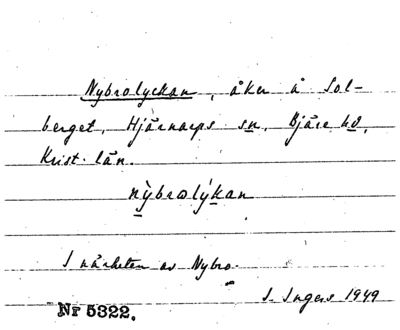 Nybrolyckan, åker å Sol-
berget, Hjärnarps sn, Bjäre hd,
Krist. län.
nỳbrolýkan
I närheten av Nybro.
I. Ingers 1949
Nr 5322.